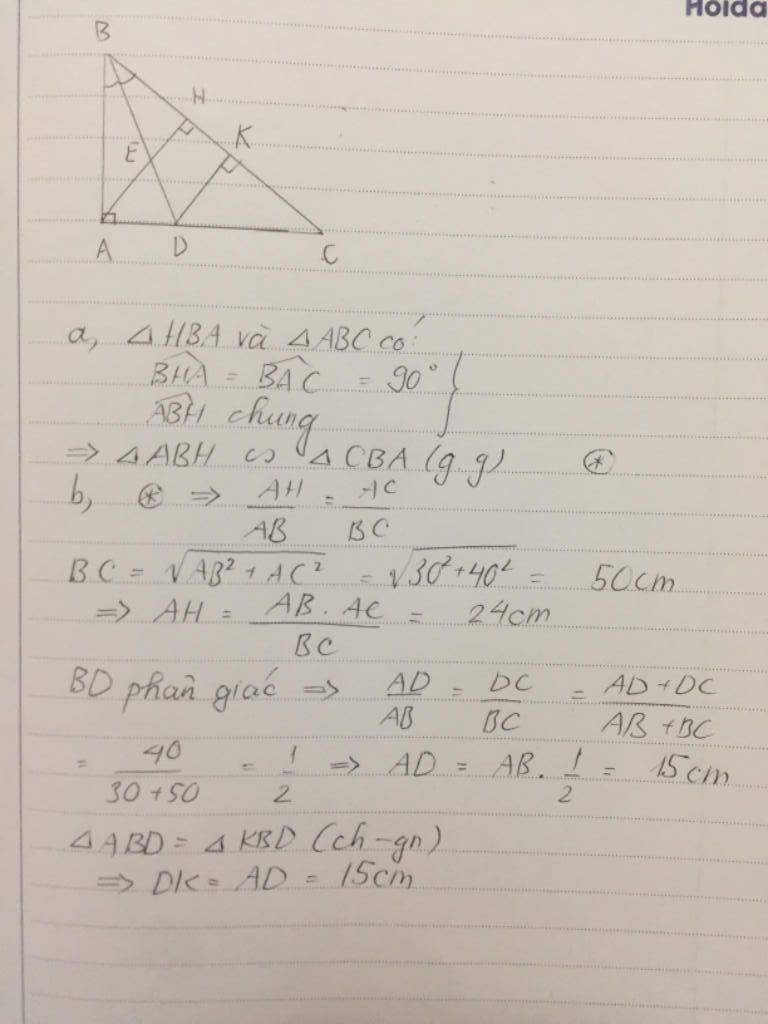 Hoida
B
H
K
E
A D C
a, △HBA và △ABC có:
BHA = BAC = 90°
ABH chung
=> △ABH ∽ △CBA (g.g) ⊛
b, ⊛ => AH/AB = AC/BC
BC = √(AB² + AC²) = √(30² + 40²) = 50cm
=> AH = AB . AC / BC = 24cm
BD phân giác => AD/AB = DC/BC = (AD + DC)/(AB + BC)
= 40/(30 + 50) = 1/2 => AD = AB . 1/2 = 15cm
△ABD = △KBD (ch-gn)
=> DK = AD = 15cm